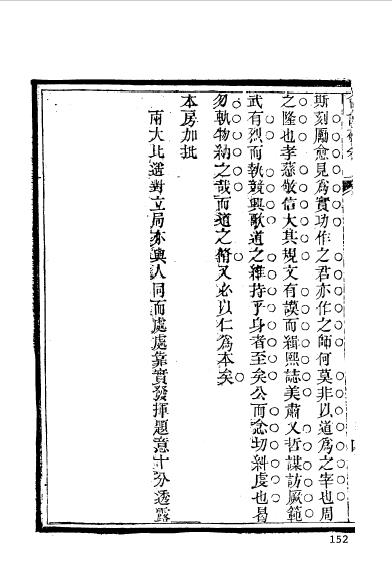 斯刻厲愈見為實功作之君亦作之師何莫非以道為之宰也周
之隆也孝慈敬信大其規文有謨而緝熙誌美肅乂哲謀訪厥範
武有烈而執競興歌道之維持乎身者至矣公而忘切糾虔也曷
勿執物紉之哉而道之脩又必以仁為本矣
本房加批
兩大比選對立局亦與人同而處處靠實發揮題意十分透露
152